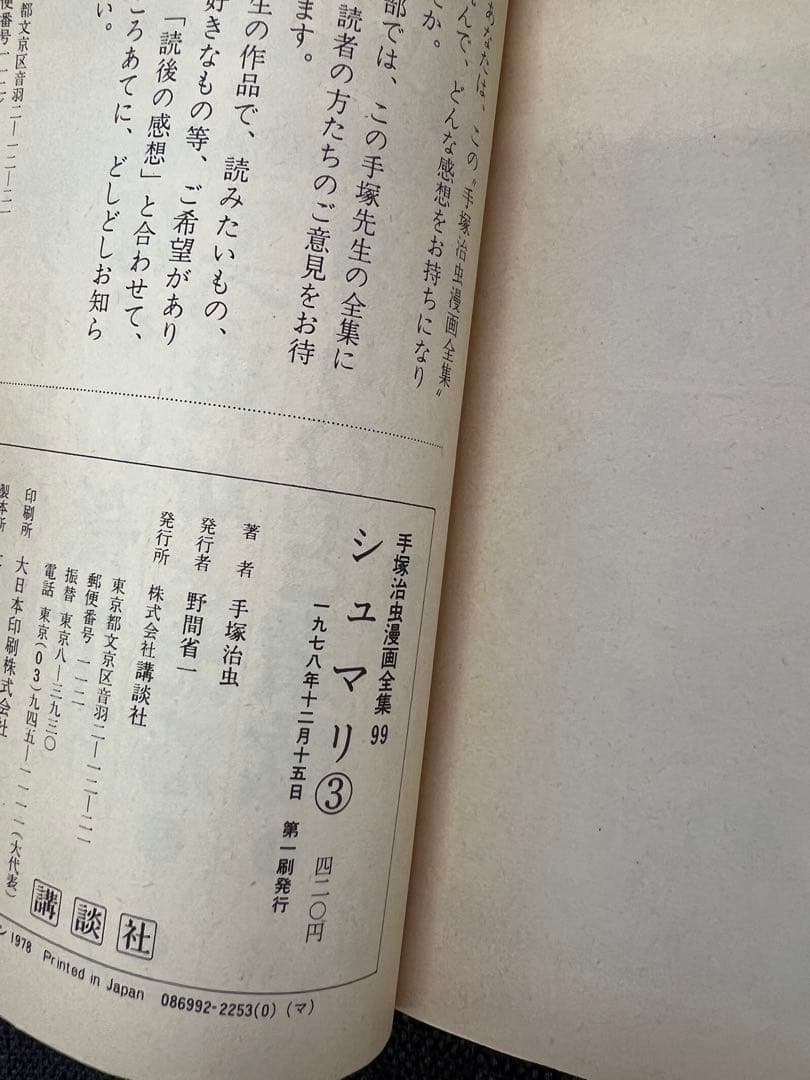 あなたは、この〝手塚治虫漫画全集〟
んで、どんな感想をお持ちになり
か。
部では、この手塚先生の全集に
読者の方たちのご意見をお待
ます。
生の作品で、読みたいもの、
好きなもの等、ご希望があり
「読後の感想」と合わせて、
ころあてに、どしどしお知ら
い。
都文京区音羽二―一二―二一
便番号一一二
手塚治虫漫画全集 99
シュマリ③
四二〇円
一九七八年十二月十五日 第一刷発行
著者 手塚治虫
発行者 野間省一
発行所 株式会社講談社
東京都文京区音羽二―一二―二一
郵便番号 一一二
振替 東京八―三九三〇
電話 東京(03)九四五―一一一一(大代表)
印刷所 大日本印刷株式会社
製本所
講談社
ン1978 Printed in Japan 086992-2253(0) (マ)